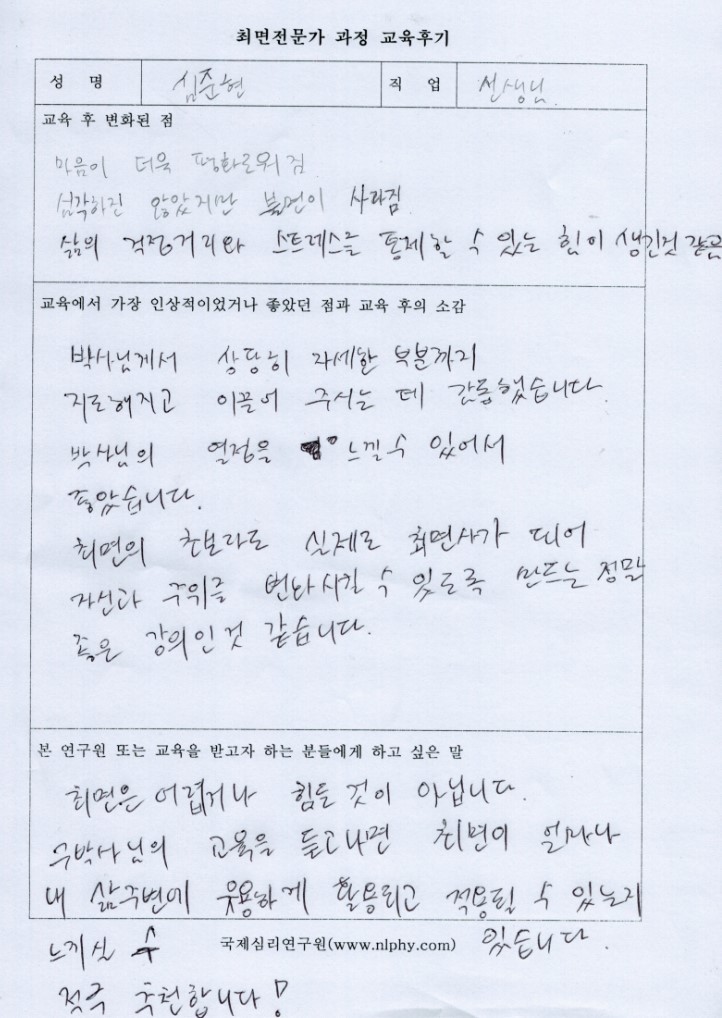 최면전문가 과정 교육후기
성 명 심준현 직 업 선생님.
교육 후 변화된 점
마음이 더욱 평화로워짐
심각하진 않았지만 불면이 사라짐
삶의 걱정거리와 스트레스를 통제할 수 있는 힘이 생긴것 같은
교육에서 가장 인상적이었거나 좋았던 점과 교육 후의 소감
박사님께서 상당히 자세한 부분까지
지도해주고 이끌어 주시는 데 감동했습니다.
박사님의 열정을 느낄수 있어서
좋았습니다.
최면의 초보라도 실제로 최면사가 되어
자신과 주위를 변화시킬 수 있도록 만드는 정말
좋은 강의인것 같습니다.
본 연구원 또는 교육을 받고자 하는 분들에게 하고 싶은 말
최면은 어렵거나 힘든 것이 아닙니다.
박사님의 교육을 듣고나면 최면이 얼마나
내 삶주변에 유용하게 활용되고 적용될 수 있는지
느끼실 수 있습니다.
국제심리연구원(www.nlphy.com)
적극 추천합니다!